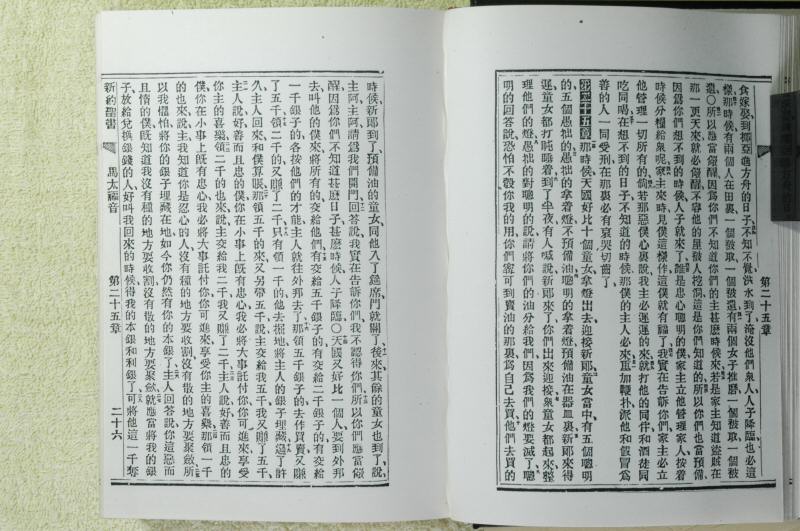 食嫁娶到挪亞進方舟的日子不知不覺洪水到了淹沒他們衆人人子降臨也必這
樣那時候有兩個人在田裏一個被取一個被還有兩個女子推磨一個被取一個被
還〇所以應當儆醒因爲你們不知道你們的主甚麽時候來若是家主知道盜賊在
那一更天來就必儆醒不准他的屋被人挖洞這是你們知道的所以你們也當預備
因爲你們想不到的時候人子就來了誰是忠心聰明的僕家主立他管理家人按着
時候分糧給衆呢家主來時見僕這樣作這僕就有福了我實在告訴你們家主必立
他管理一切所有的倘若那惡僕心裏說我主必遲遲的來就打他的同伴和酒徒同
吃同喝在想不到的日子不知道的時候那僕的主人必來重加鞭扑派他和假冒爲
善的人一同受刑在那裏必有哀哭切齒了
第二十五章那時候天國好比十個童女拿燈出去迎接新郎童女當中有五個聰明
的五個愚拙的愚拙的拿着燈不預備油聰明的拿着燈預備油在器皿裏新郎來得
遲童女都打盹睡着到了半夜有人喊說新郎來了你們出來迎接衆童女都起來整
理他們的燈愚拙的對聰明的說請將你們的油分給我們因爲我們的燈要滅了聰
明的回答說恐怕不彀你我的用你們寧可到賣油的那裏爲自己去買他們去買的
第二十五章
時候新郎到了預備油的童女同他入了筵席門就關了後來其餘的童女也到了說
主阿主阿請爲我們開門回答說我實在告訴你們我不認得你們所以你們應當儆
醒因爲你們不知道甚麽日子甚麽時候人子降臨〇天國又好比一個人要到外邦
去叫他的僕來將所有的交給他們有交給五千銀子的有交給二千銀子的有交給
一千銀子的各按他們的才能主人就往外邦去了那領五千銀子的去作買賣又賺
了五千領二千的又賺了二千只有領一千的他去掘地將主人的銀子埋藏了過了許
久主人回來和僕算賬那領五千的來又另帶五千說主交給我五千我又賺了五千
主人說好善而且忠的僕你在小事上旣有忠心我必將大事託付你你可進來享受
你主的喜樂領二千的也來說主交給我二千我又賺了二千主人說好善而且忠的
僕你在小事上旣有忠心我必將大事託付你你可進來享受你主的喜樂那領一千
的也來說主我知道你是忍心的人沒有種的地方要收割沒有散的地方要聚斂所
以我懼怕將你的銀子埋藏在地如今你仍然有你的本銀了主人回答說你這惡而
且惰的僕旣知道我沒有種的地方要收割沒有散的地方要聚斂就應當將我的銀
子放給兌換銀錢的人好叫我回來的時候得我的本銀和利銀了可將他這一千奪
新約聖書
馬太福音
第二十五章
二十六